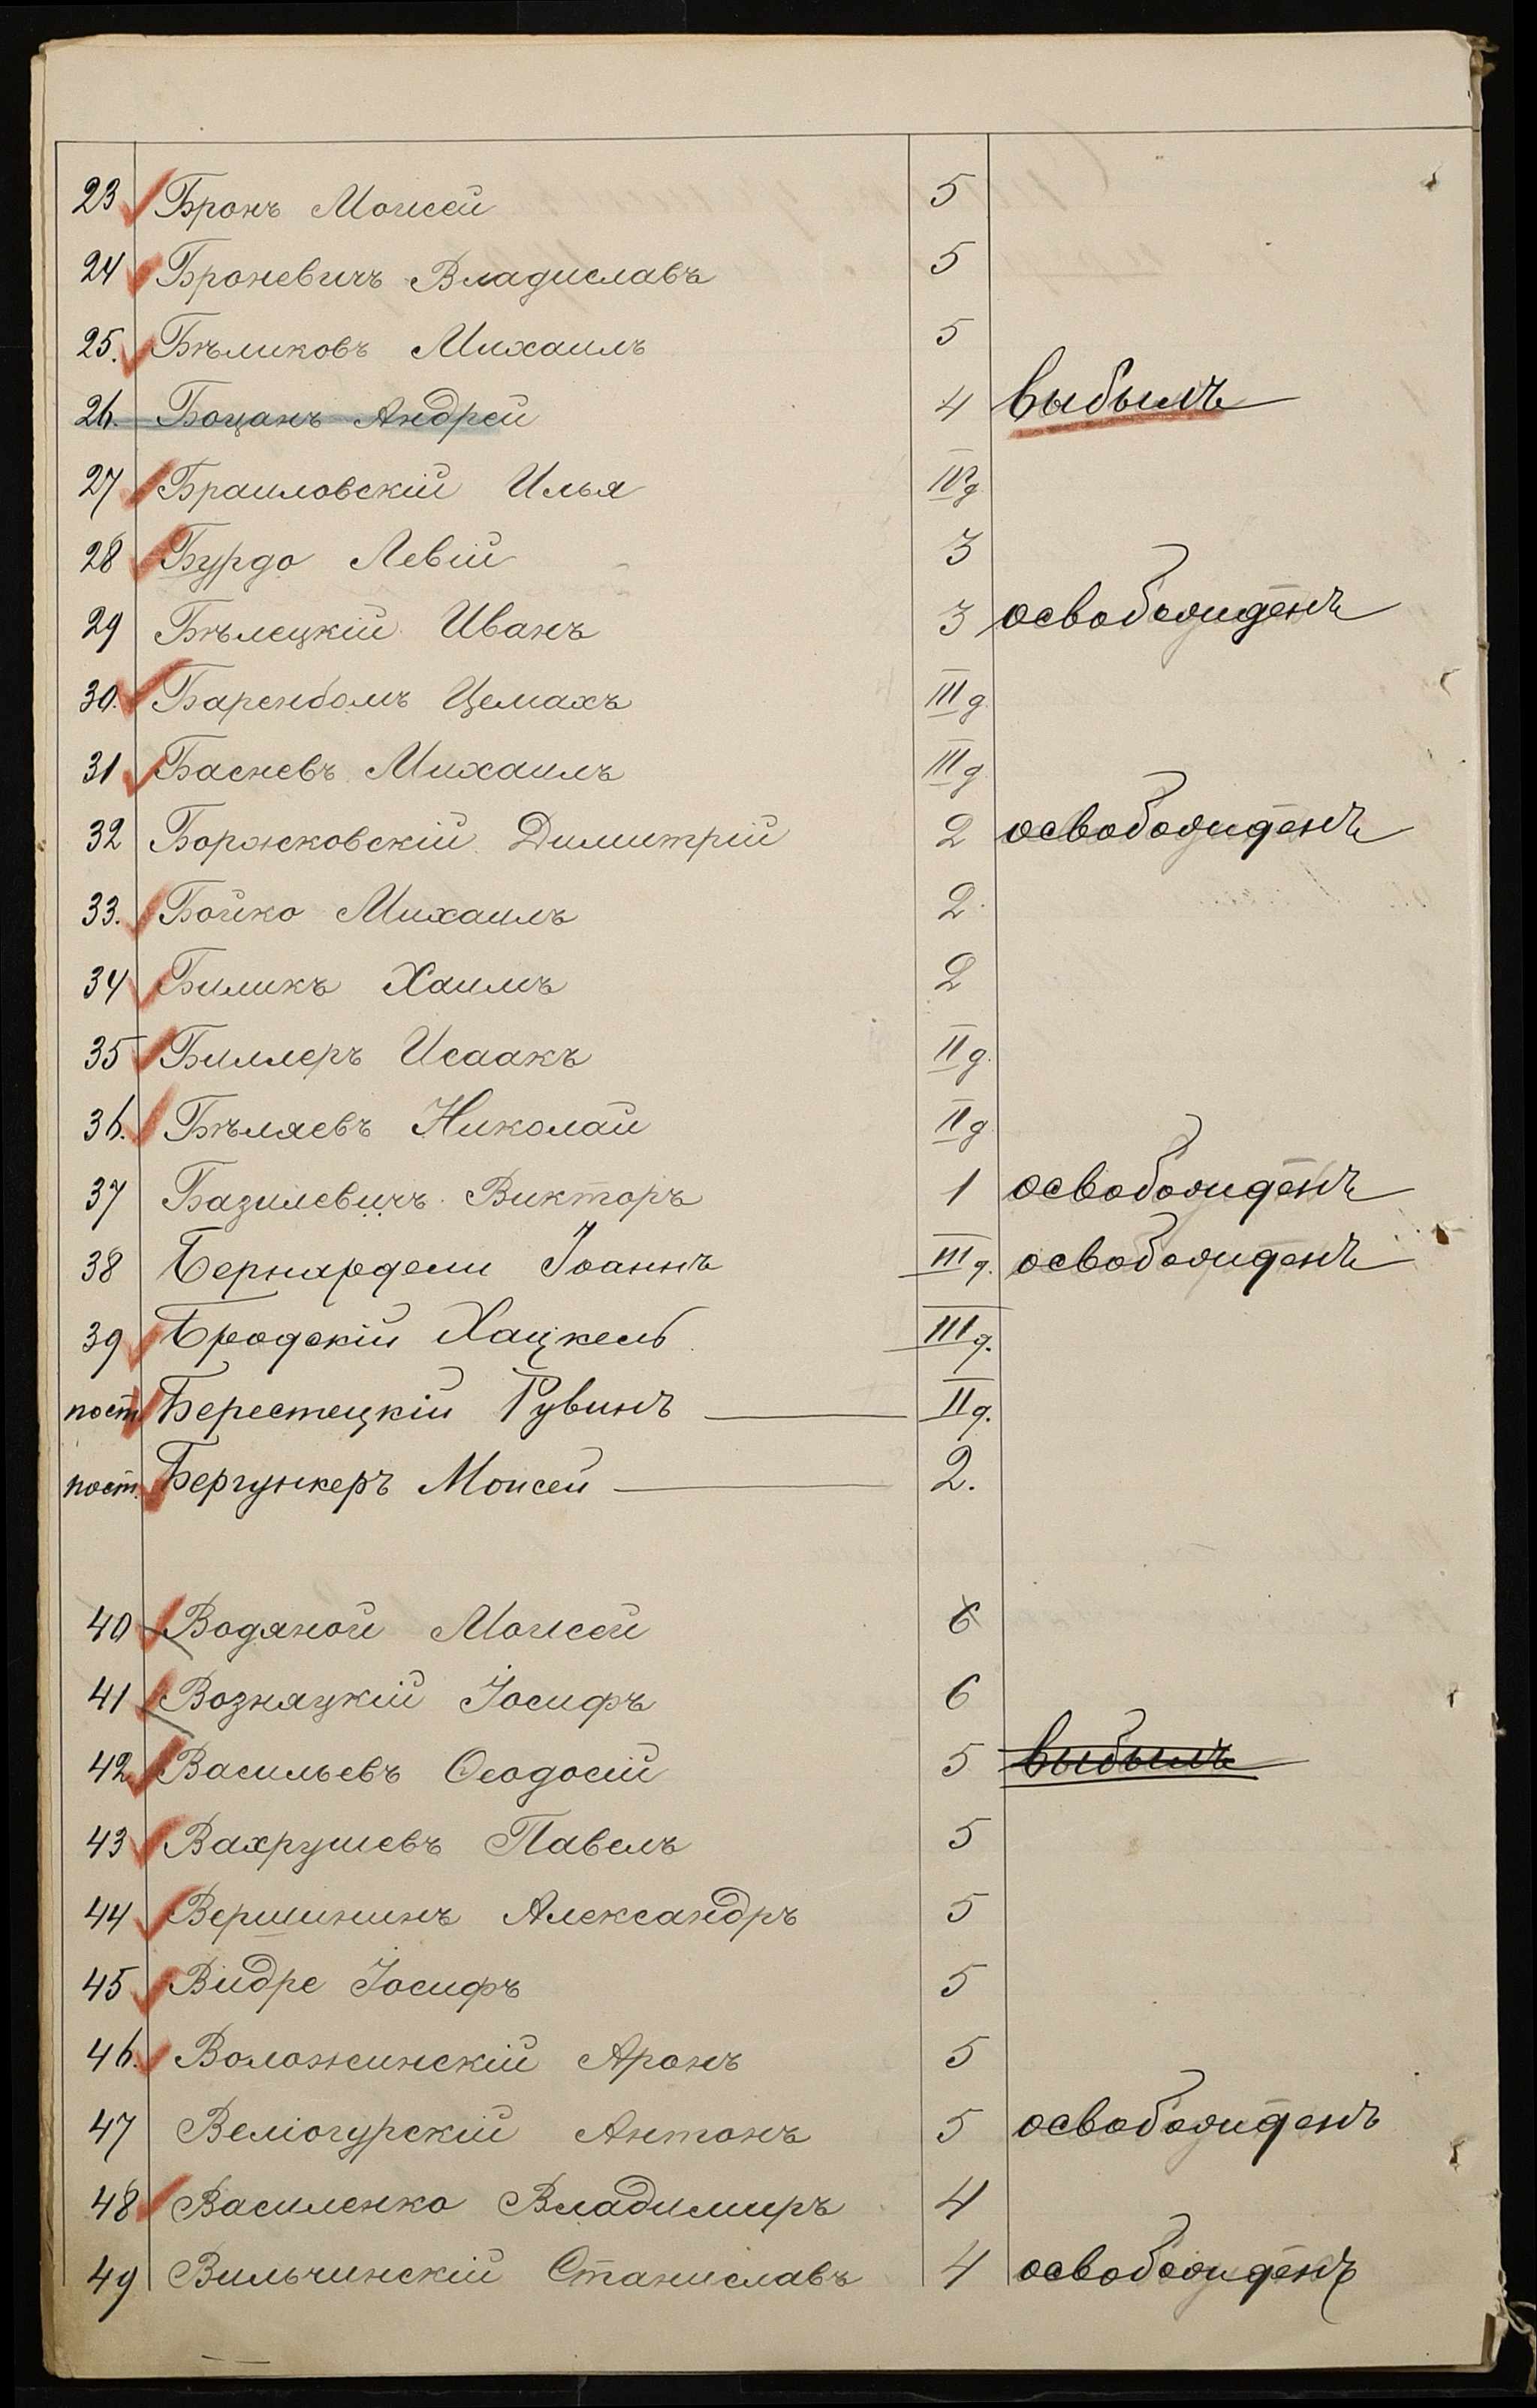 23 Бронъ Моисей 5
24 Броневичъ Владиславъ 5
25. Бѣликовъ Михаилъ 5
26. Боцанъ Андрей 4 выбылъ
27 Браиловскій Илья IVд
28 Бурдо Левій 3
29 Бѣлецкій Иванъ 3 освобожденъ
30. Баренбомъ Цемахъ IIIд.
31 Басневъ Михаилъ IIIд.
32 Боржковскій Димитрій 2 освобожденъ
33. Бойко Михаилъ 2.
34 Биликъ Хаимъ 2
35 Биллеръ Исаакъ IIд.
36. Бѣляевъ Николай IIд
37 Базилевичъ Викторъ 1 освобожденъ
38 Бернардели Іоаннъ IIIд. освобожденъ
39 Бродскій Хацкель IIIд.
пост. Берестецкій Рувинъ IIд.
пост. Бергункеръ Моисей 2.
40 Водяной Моисей 6
41 Возняцкій Іосифъ 6
42 Васильевъ Ѳеодосій 5 выбылъ
43 Вахрушевъ Павелъ 5
44 Вершининъ Александръ 5
45 Видре Іосифъ 5
46. Воложинскій Аронъ 5
47 Веліогурскій Антонъ 5 освобожденъ
48 Василенко Владимиръ 4
49 Вильчинскій Станиславъ 4 освобожденъ